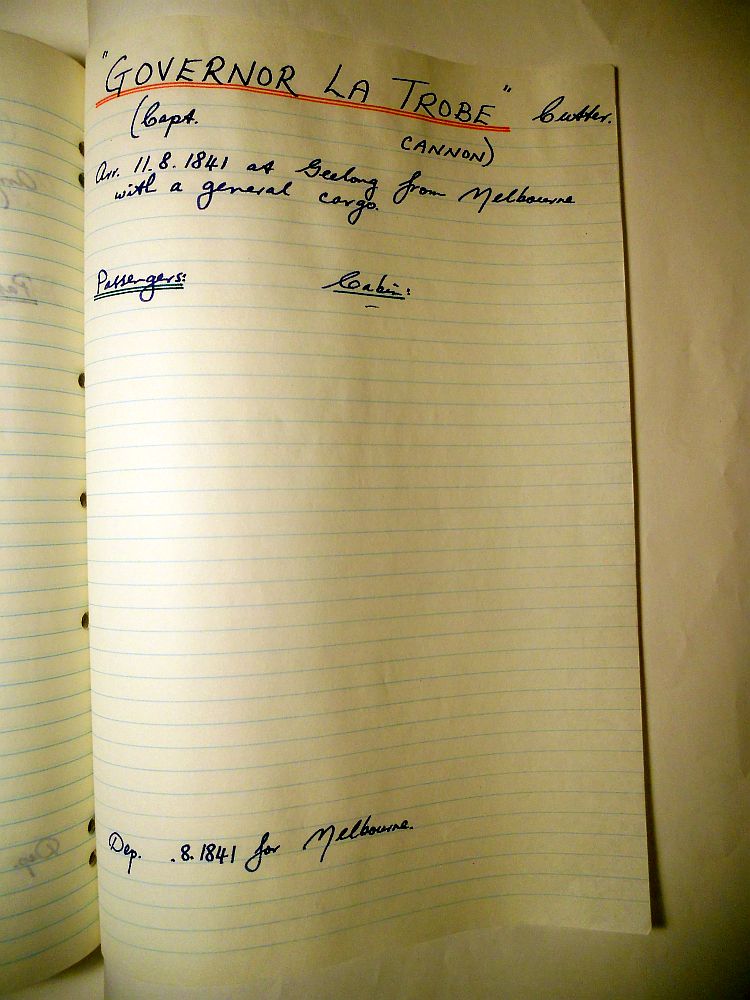 "GOVERNOR LA TROBE" Cutter.
(Capt. CANNON)
Arr. 11.8.1841 at Geelong from Melbourne
with a general cargo.
Passengers: Cabin:
Dep. .8.1841 for Melbourne.